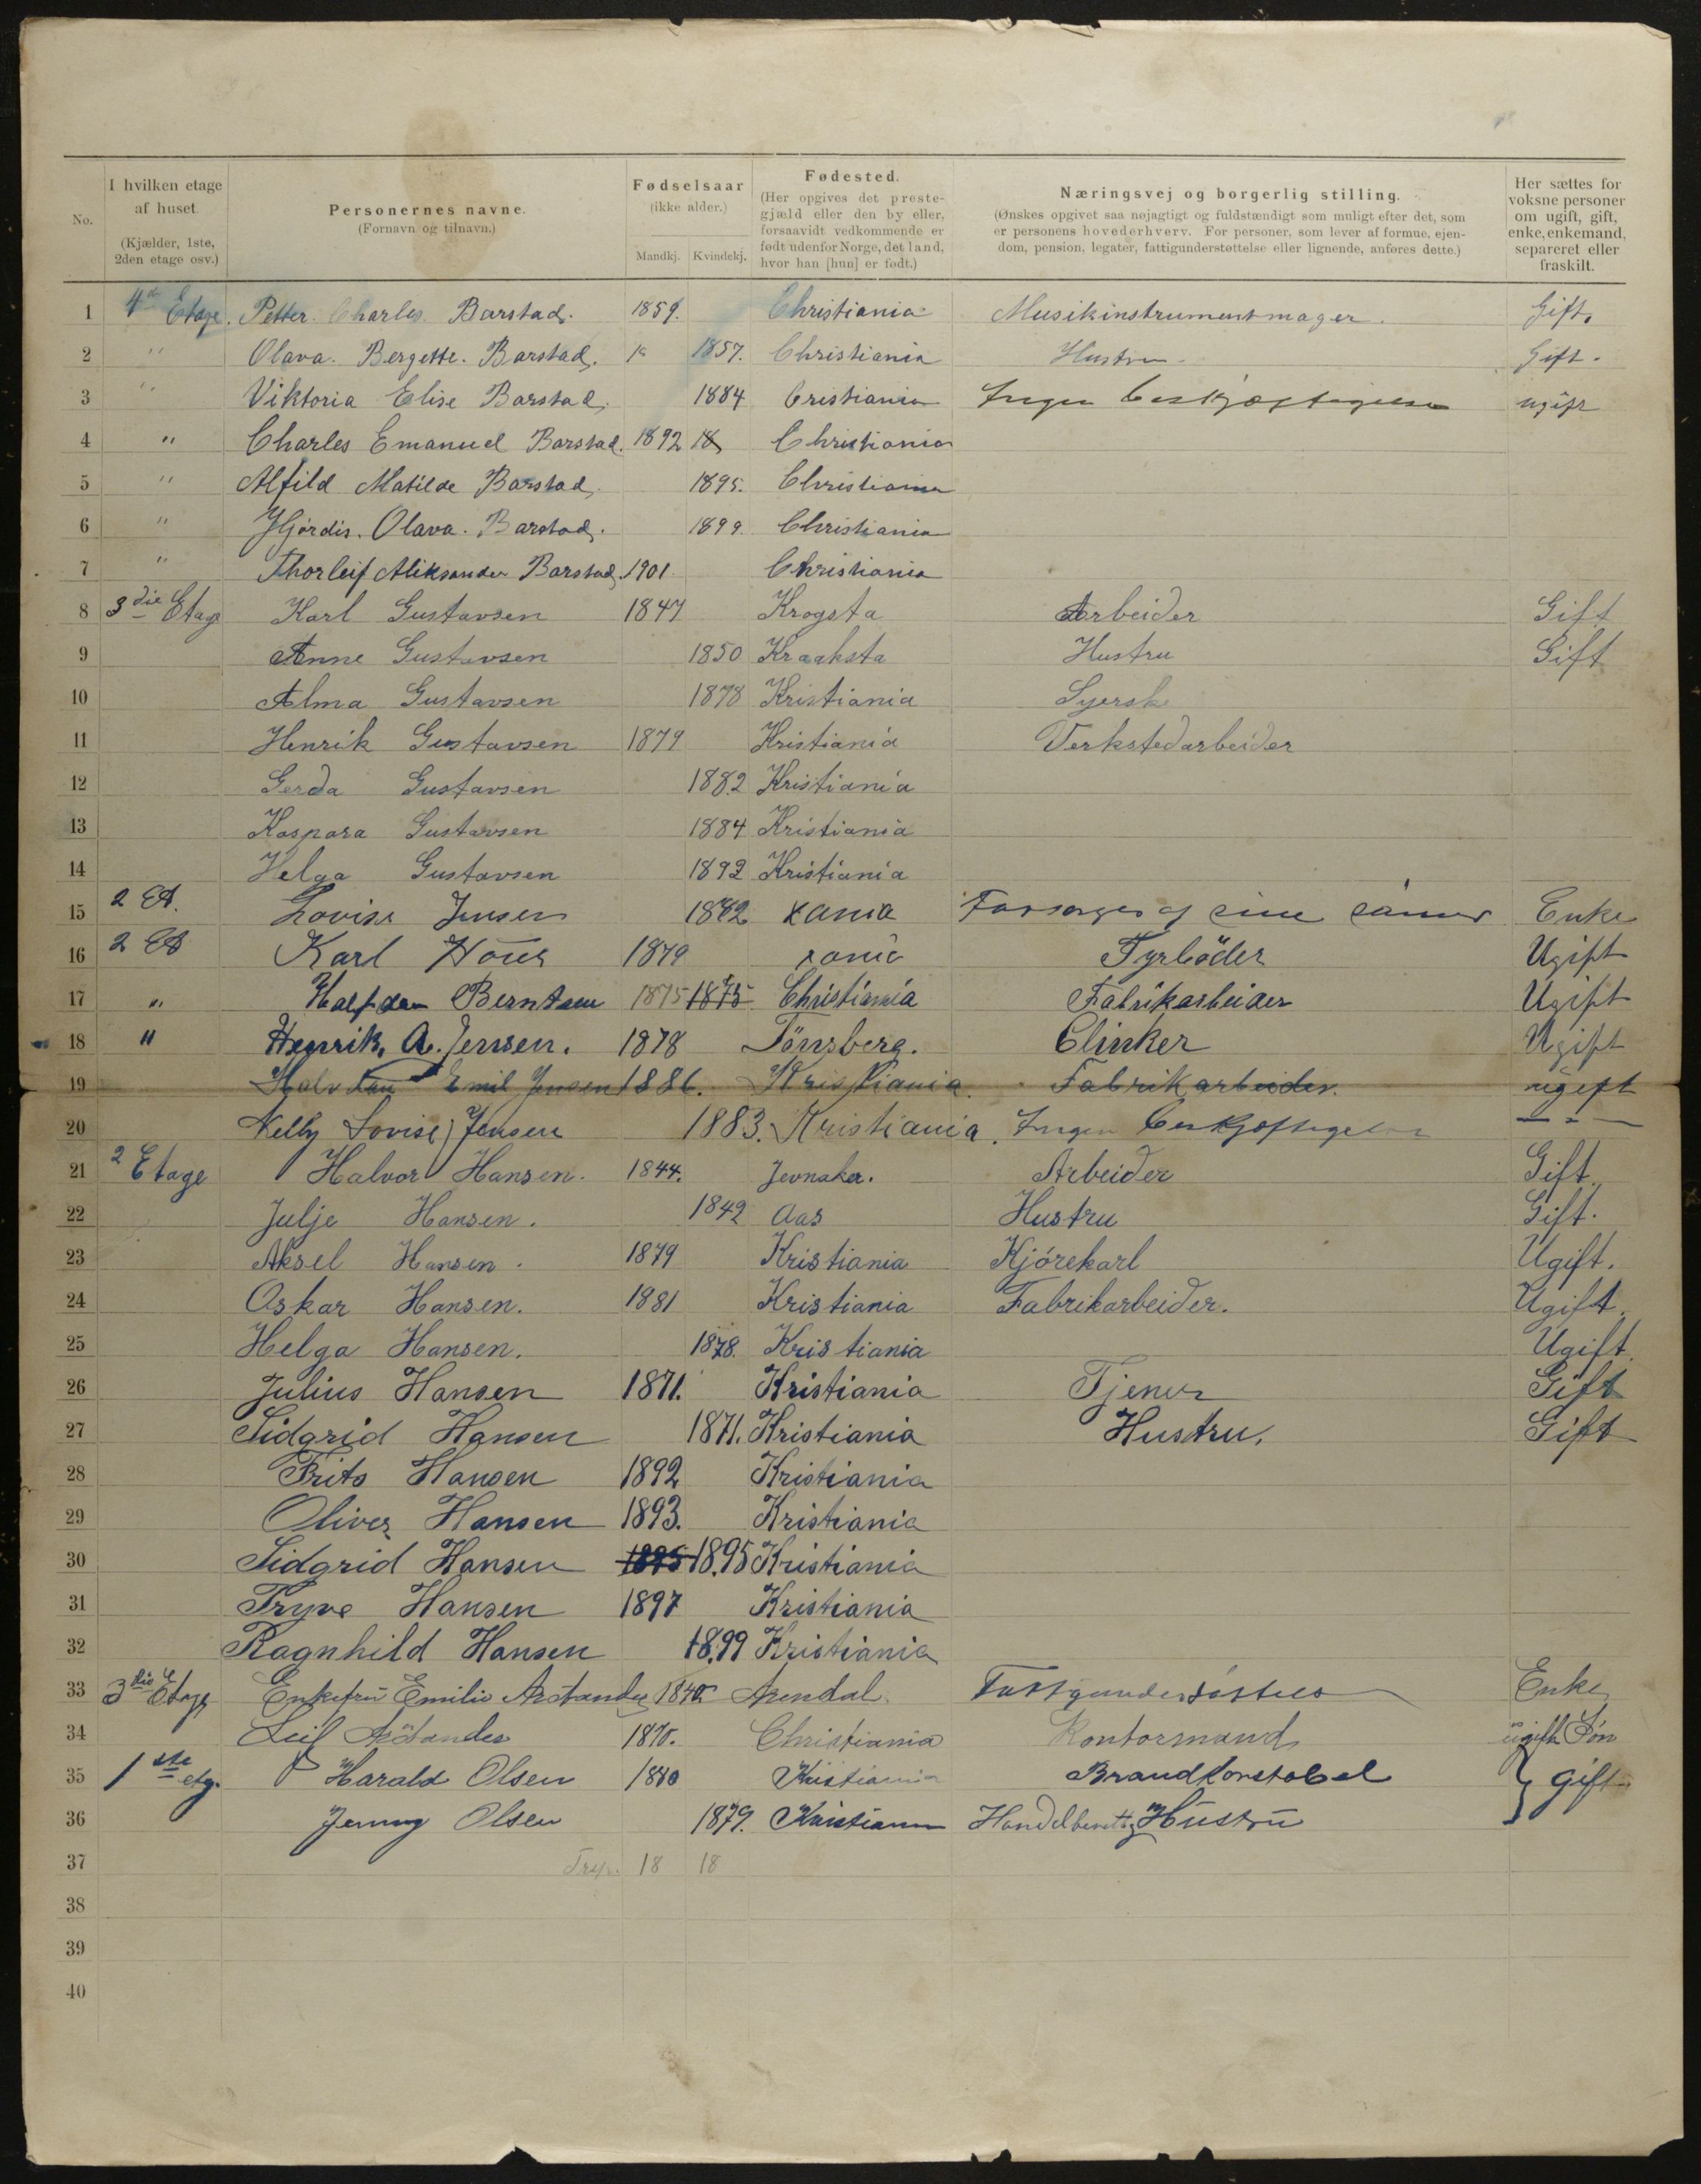 No.
I hvilken etage af huset. (Kjælder, 1ste, 2den etage osv.)
Personernes navne. (Fornavn og tilnavn.)
Fødselsaar (ikke alder.) Mandkj. Kvindekj.
Fødested. (Her opgives det prestegjæld eller den by eller, forsaavidt vedkommende er født udenfor Norge, det land, hvor han [hun] er født.)
Næringsvej og borgerlig stilling. (Ønskes opgivet saa nøjagtigt og fuldstændigt som muligt efter det, som er personens hovederhverv. For personer, som lever af formue, ejendom, pension, legater, fattigunderstøttelse eller lignende, anføres dette.)
Her sættes for voksne personer om ugift, gift, enke, enkemand, separeret eller fraskilt.
1 4de Etage. Petter Charles Barstad. 1859. Christiania Musikinstrumentmager. Gift.
2 " Olava. Bergette. Barstad. 1857. Christiania Hustru. Gift.
3 " Viktoria Elise Barstad. 1884 Cristiania Ingen Beskjæftigelse ugift
4 " Charles Emanuel Barstad. 1892 18 Christiania
5 " Alfild Matilde Barstad. 1895. Christiania
6 " Hjørdis. Olava. Barstad. 1899. Christiania
7 " Thorleif Aliksander Barstad. 1901. Christiania
8 3die Etage Karl Gustavsen 1847 Krogsta Arbeider Gift
9 Anne Gustavsen 1850 Kraaksta Hustru Gift
10 Alma Gustavsen 1878 Kristiania Syersk
11 Henrik Gustavsen 1879 Kristiania Verkstedarbeider
12 Gerda Gustavsen 1882 Kristiania
13 Kaspara Gustavsen 1884 Kristiania
14 Helga Gustavsen 1892 Kristiania
15 2 Et. Lovise Jensen xania Forsørges af sine sønner Enke
16 2 Et Karl 1879 xania Fyrbøder Ugift
17 " Halfdan Berntsen 1875 1875 Christiania Fabrikarbeider Ugift
18 " Henrik. A. Jensen. 1878 Tönsberg. Clinker Ugift
19 Halvdan Emil Jensen 1886. Kristiania. Fabrikarbeider. ugift
20 Nelly Lovise Jensen 1883. Kristiania. Ingen Beskjæftigelse — " —
21 2 Etage Halvor Hansen. 1844. Jevnaker. Arbeider Gift.
22 Julje Hansen. 1842 Aas Hustru Gift.
23 Aksel Hansen. 1879 Kristiania Kjörekarl Ugift.
24 Oskar Hansen. 1881 Kristiania Fabrikarbeider. Ugift.
25 Helga Hansen. 1878. Kristiania Ugift.
26 Julius Hansen 1871. Kristiania Tjener Gift
27 Sidgrid Hansen 1871. Kristiania Hustru. Gift
28 Frits Hansen 1892 Kristiania
29 Oliver Hansen 1893. Kristiania
30 Sidgrid Hansen 1895 18.95 Kristiania
31 Tryve Hansen 1897 Kristiania
32 Ragnhild Hansen 18.99 Kristiania
33 3die Etage Enkefru Emilie 1840 Arendal. Enke
34 Leif 1870. Christiania Kontormand ugift Søn
35 1ste etg. Harald Olsen 1880 Kristiania Brandkonstabel } gift
36 Jenny Olsen 1879. Kristiania Handelberettig Hustru
37 18 18
38
39
40